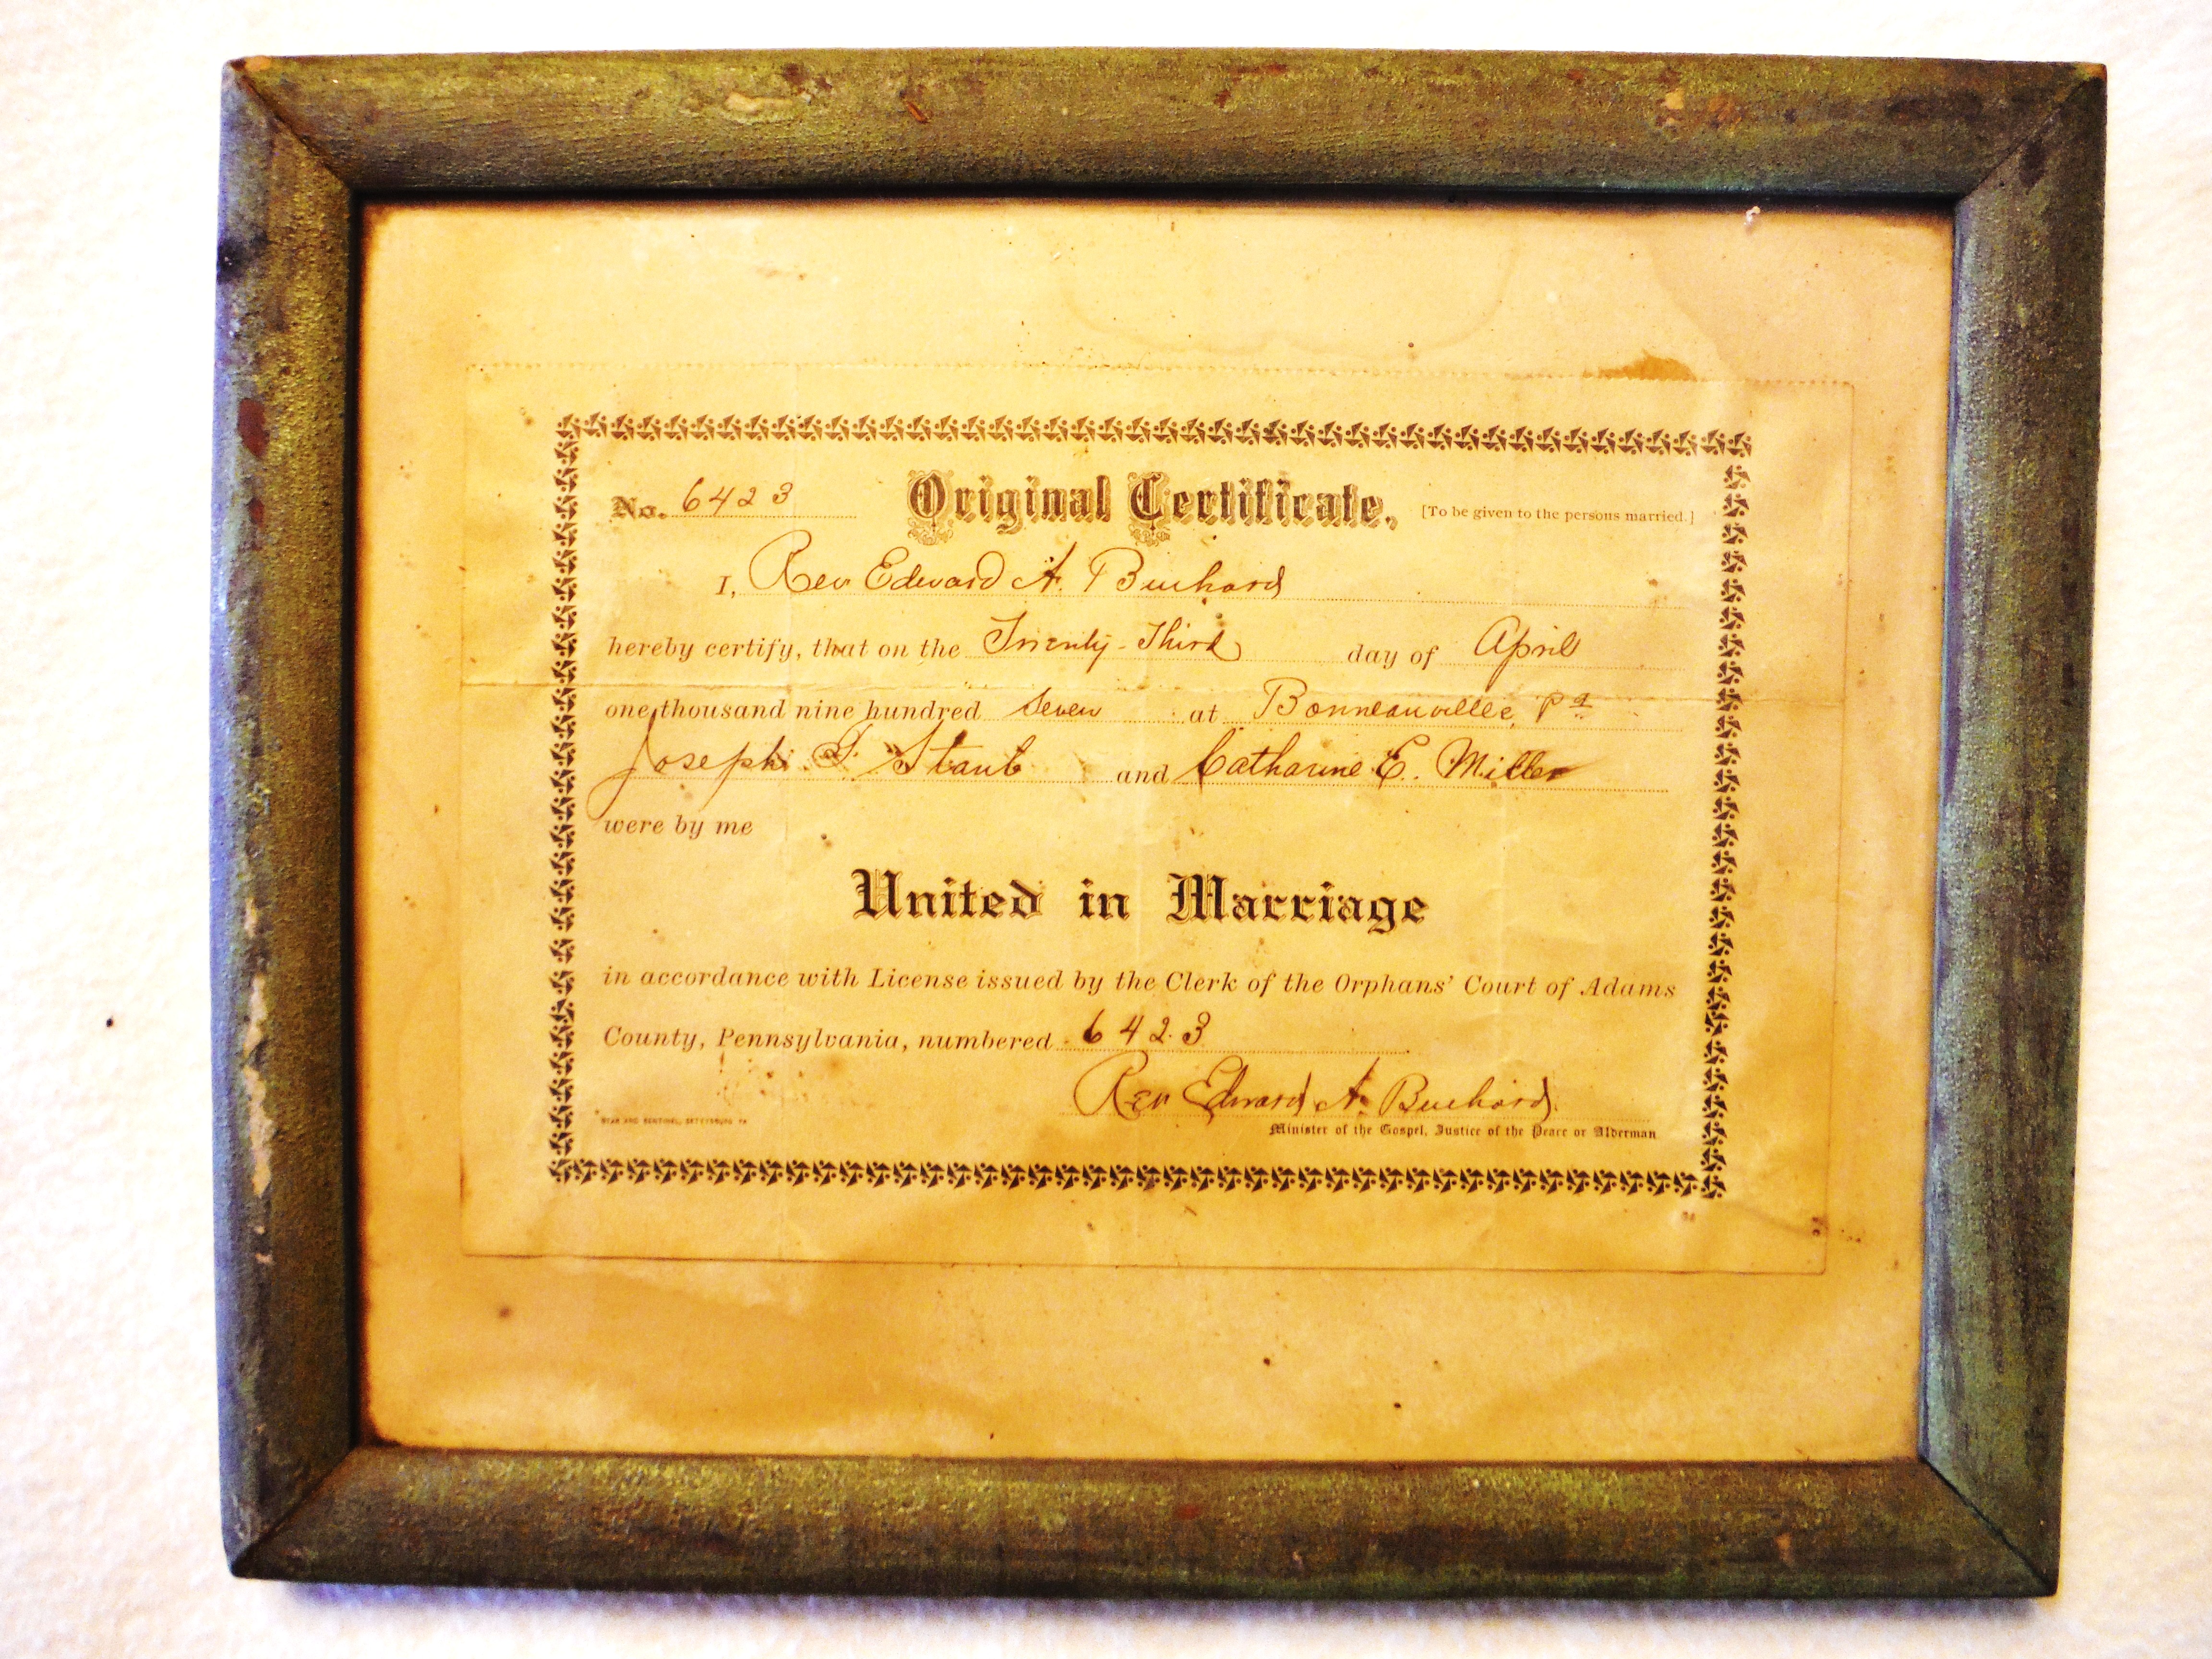 No. 6423 Original Certificate, [To be given to the persons married.]
I, Rev Edward A. Burchard
hereby certify, that on the Twenty-Third day of April
one thousand nine hundred seven at Bonneauville, Pa
Joseph Staub and Catharine E. Miller
were by me
United in Marriage
in accordance with License issued by the Clerk of the Orphans' Court of Adams
County, Pennsylvania, numbered 6423
Rev Edward A. Burchard
STAR AND SENTINEL, GETTYSBURG PA
Minister of the Gospel, Justice of the Peace or Alderman